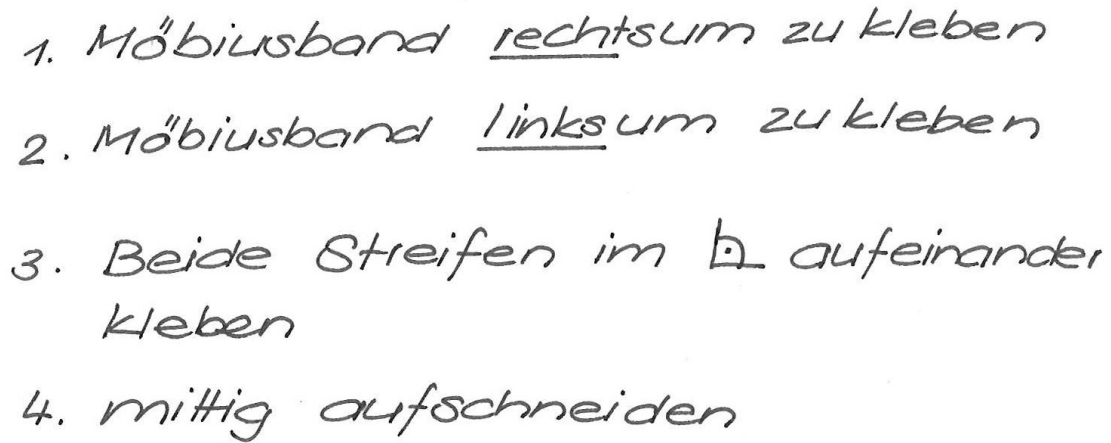 1. Möbiusband rechtsum zu kleben
2. Möbiusband linksum zu kleben
3. Beide Streifen im ⦜ aufeinander
kleben
4. mittig aufschneiden